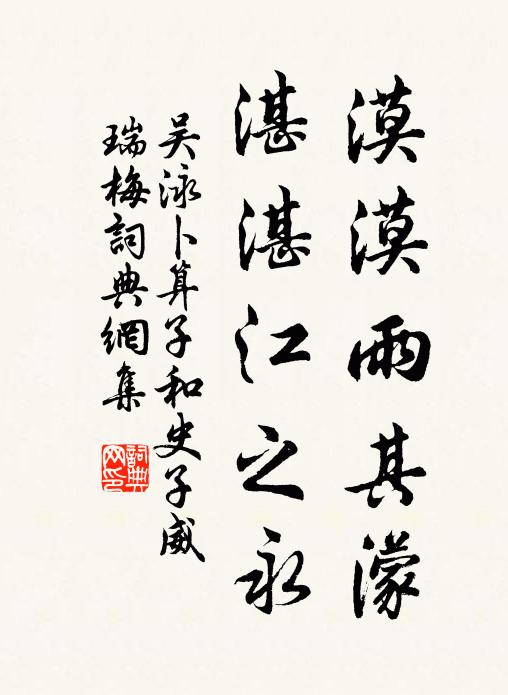 漠漠雨其濛
湛湛江之永
吴泳卜算子和史子威
瑞梅詞典網集
詞典网印